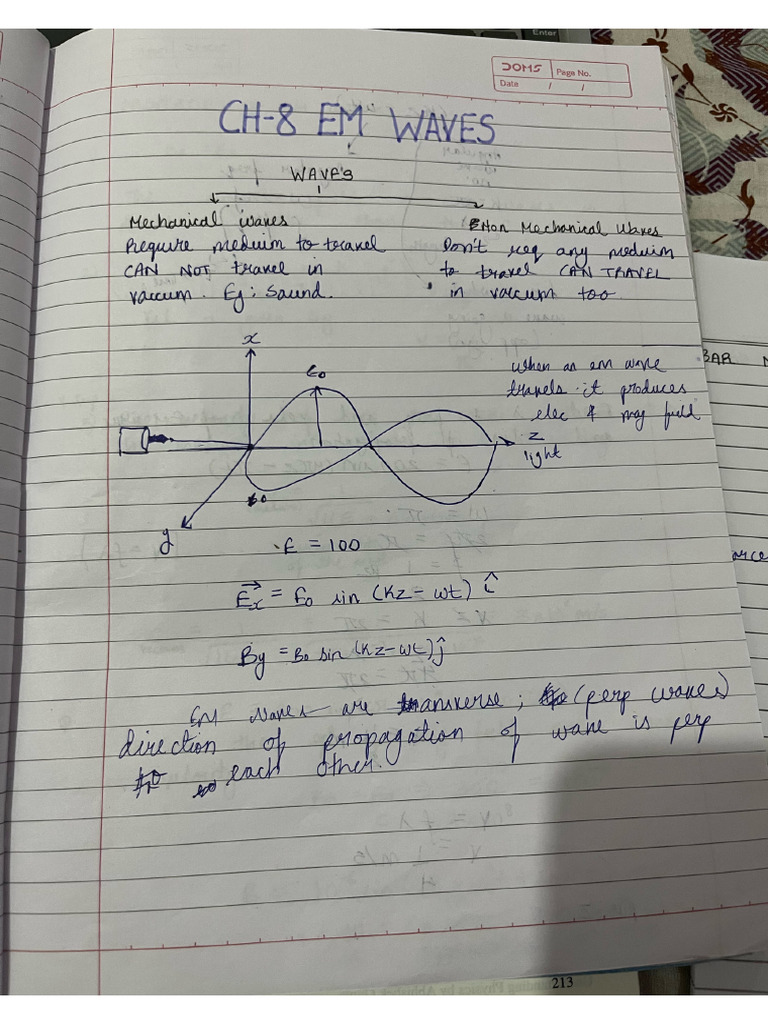 Enter
DOMS
Page No.
Date / /
CH-8 EM WAVES
WAVES
Mechanical waves
Require meduim to travel
CAN NOT travel in
vaccum. Eg: Sound.
Non Mechanical Waves
Don't req any meduim
to travel CAN TRAVEL
in vaccum too.
x
E₀
when an em wave
travels it produces
elec & mag field
z
light
B₀
y
E = 100
E⃗x = E₀ sin (Kz - wt) î
By = B₀ sin (Kz-wt) ĵ
EM Waves are transverse; (perp waves)
direction of propagation of wave is perp
to each other.
BAR
213